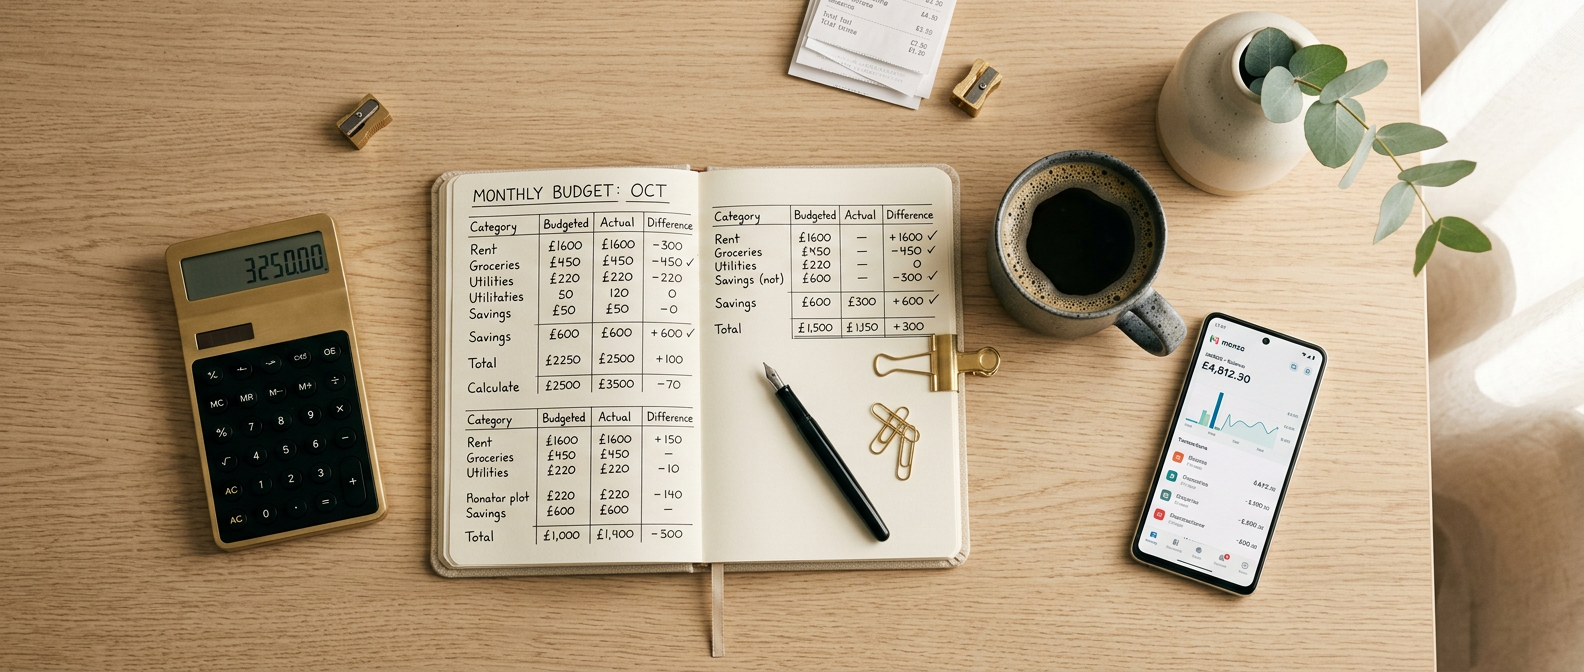 MONTHLY BUDGET: OCT
Category Budgeted Actual Difference
Rent £1600 £1600 -300
Groceries £450 £450 -450 ✓
Utilities £220 £220 -220
Utilitaties 50 120 0
Savings £50 £50 -0
Savings £600 £600 +600 ✓
Total £2250 £2500 +100
Calculate £2500 £3500 -70
Category Budgeted Actual Difference
Rent £1600 £1600 +150
Groceries £450 £450 —
Utilities £220 £220 -10
Ronatar plot £220 £220 -140
Savings £600 £600 —
Total £1,000 £1,400 -500
Category Budgeted Actual Difference
Rent £1600 — +1600 ✓
Groceries — -450 ✓
Utilities £220 — 0
Savings (not) £600 — -300 ✓
Savings £600 £300 +600 ✓
Total £1,500 £1,150 +300
3250.00
% MC MR M- M+ ÷
% 7 8 9 ×
√ 4 5 6 −
AC 1 2 3 +
AC 0 . =
£4.50
£3.50
£4,812.30